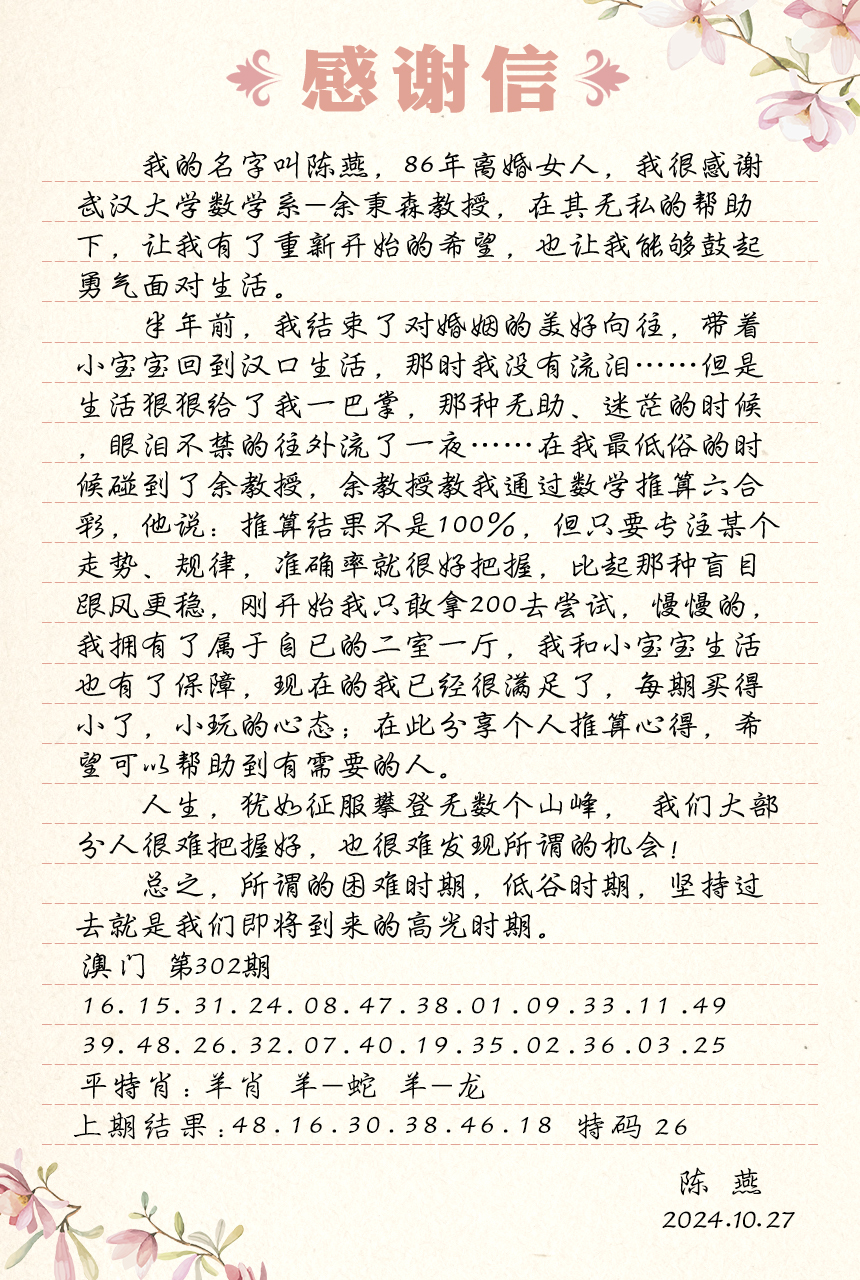 感谢信
我的名字叫陈燕，86年离婚女人，我很感谢
武汉大学数学系—余秉森教授，在其无私的帮助
下，让我有了重新开始的希望，也让我能够鼓起
勇气面对生活。
半年前，我结束了对婚姻的美好向往，带着
小宝宝回到汉口生活，那时我没有流泪……但是
生活狠狠给了我一巴掌，那种无助、迷茫的时候
，眼泪不禁的往外流了一夜……在我最低俗的时
候碰到了余教授，余教授教我通过数学推算六合
彩，他说：推算结果不是100%，但只要专注某个
走势、规律，准确率就很好把握，比起那种盲目
跟风更稳，刚开始我只敢拿200去尝试，慢慢的，
我拥有了属于自已的二室一厅，我和小宝宝生活
也有了保障，现在的我已经很满足了，每期买得
小了，小玩的心态；在此分享个人推算心得，希
望可以帮助到有需要的人。
人生，犹如征服攀登无数个山峰， 我们大部
分人很难把握好，也很难发现所谓的机会！
总之，所谓的困难时期，低谷时期，坚持过
去就是我们即将到来的高光时期。
澳门 第302期
16.15.31.24.08.47.38.01.09.33.11.49
39.48.26.32.07.40.19.35.02.36.03.25
平特肖：羊肖 羊—蛇 羊—龙
上期结果：48.16.30.38.46.18 特码 26
陈 燕
2024.10.27